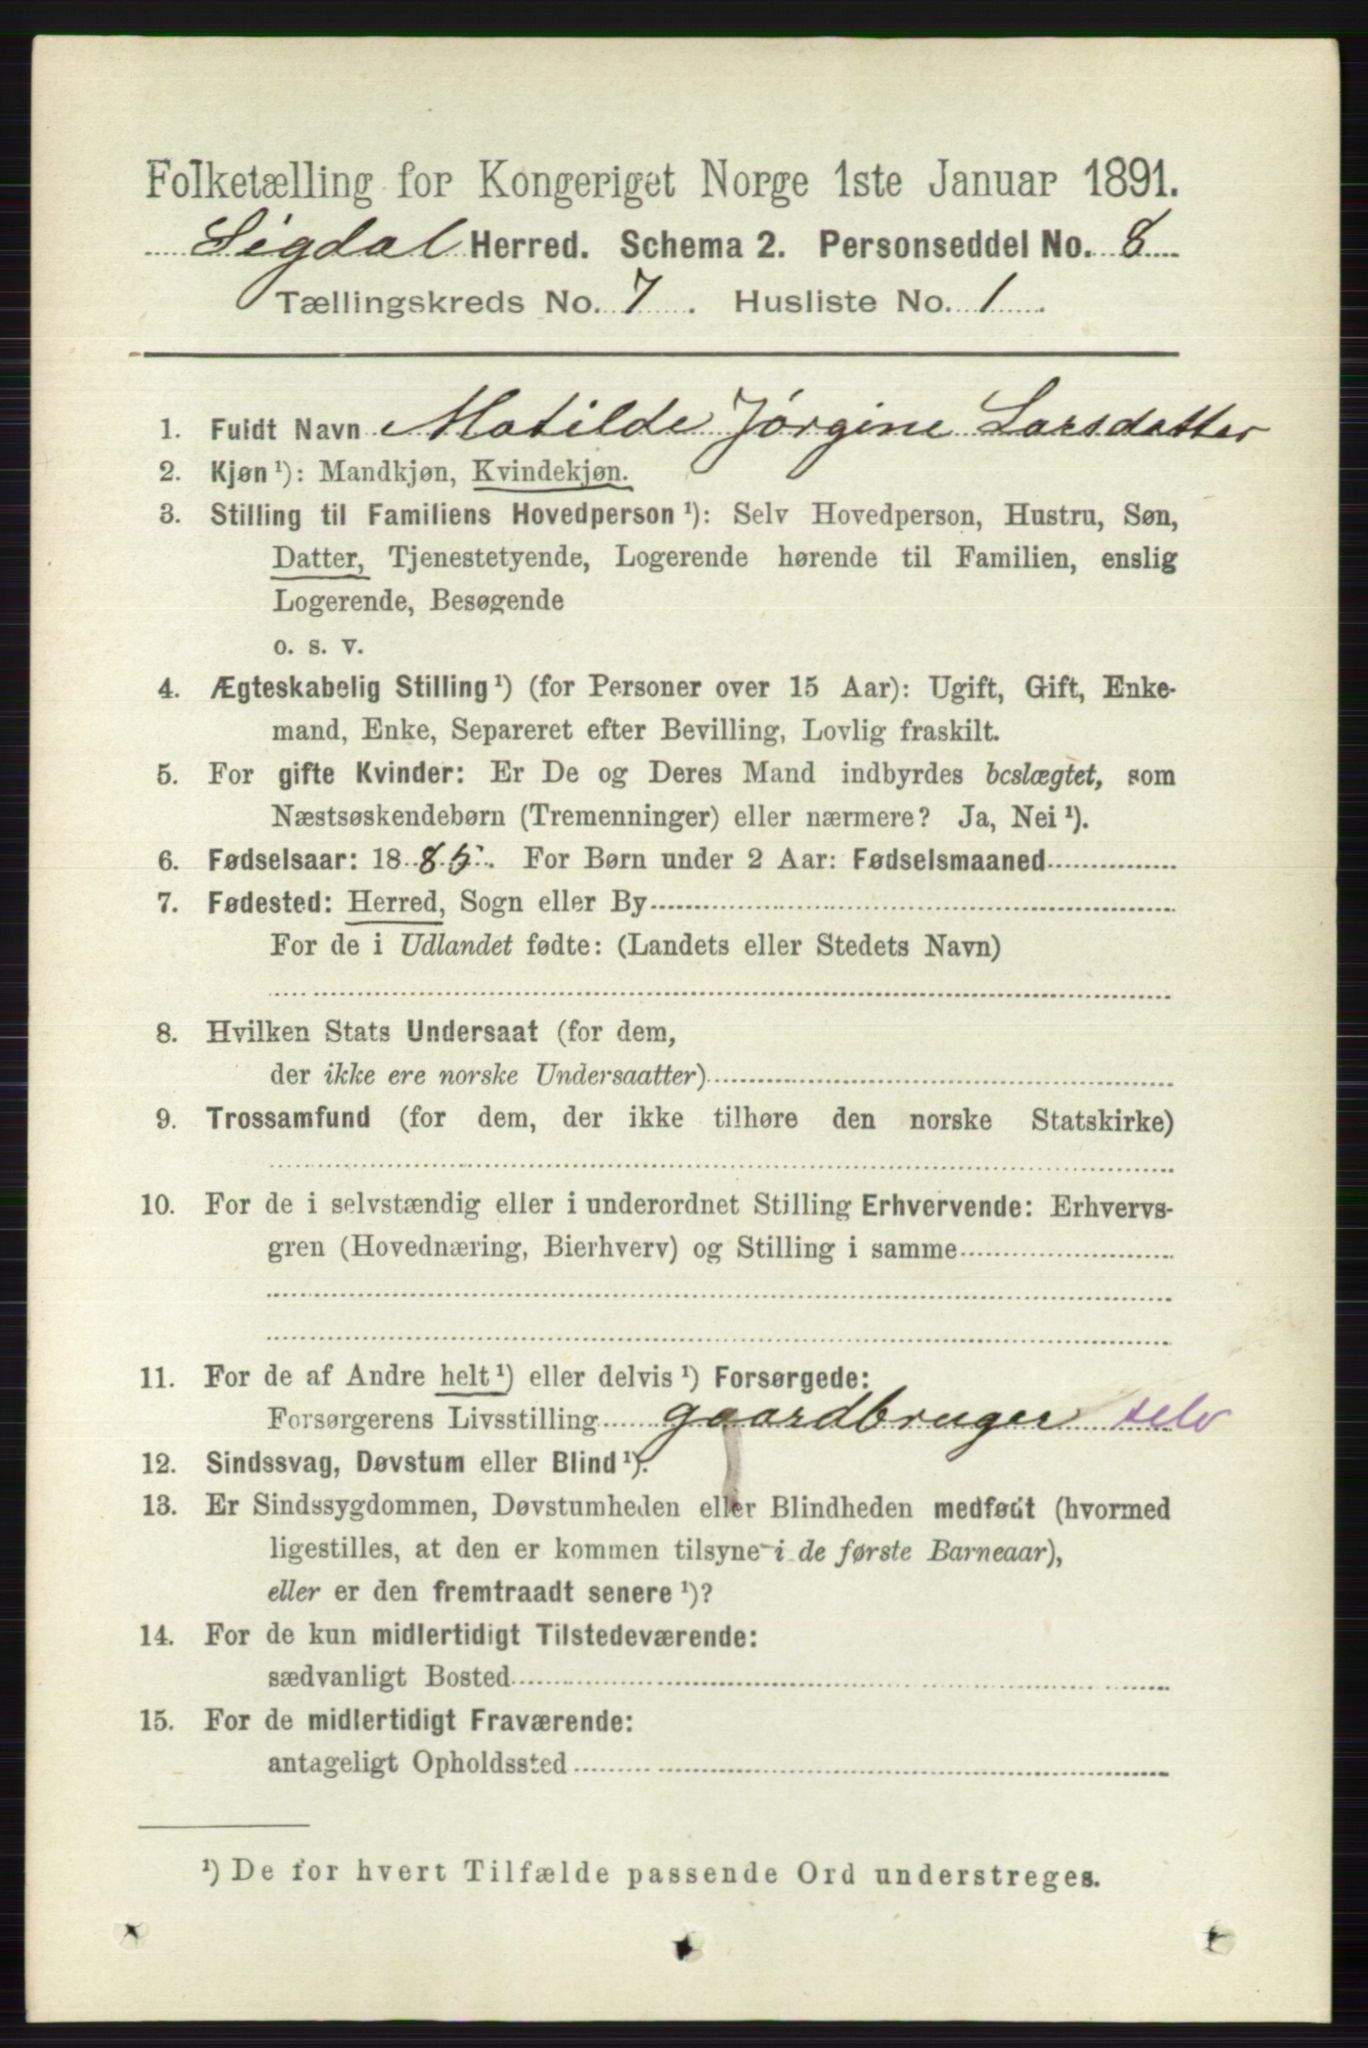 Folketælling for Kongeriget Norge 1ste Januar 1891.
Sigdal Herred. Schema 2. Personseddel No. 8
Tællingskreds No. 7. Husliste No. 1.
1. Fuldt Navn Matilde Jørgine Larsdatter
2. Kjøn¹): Mandkjøn, Kvindekjøn.
3. Stilling til Familiens Hovedperson¹): Selv Hovedperson, Hustru, Søn,
Datter, Tjenestetyende, Logerende hørende til Familien, enslig
Logerende, Besøgende
o. s. v.
4. Ægteskabelig Stilling¹) (for Personer over 15 Aar): Ugift, Gift, Enke-
mand, Enke, Separeret efter Bevilling, Lovlig fraskilt.
5. For gifte Kvinder: Er De og Deres Mand indbyrdes beslægtet, som
Næstsøskendebørn (Tremenninger) eller nærmere? Ja, Nei¹).
6. Fødselsaar: 1885. For Børn under 2 Aar: Fødselsmaaned
7. Fødested: Herred, Sogn eller By
For de i Udlandet fødte: (Landets eller Stedets Navn)
8. Hvilken Stats Undersaat (for dem,
der ikke ere norske Undersaatter)
9. Trossamfund (for dem, der ikke tilhøre den norske Statskirke)
10. For de i selvstændig eller i underordnet Stilling Erhvervende: Erhvervs-
gren (Hovednæring, Bierhverv) og Stilling i samme
11. For de af Andre helt¹) eller delvis¹) Forsørgede:
Forsørgerens Livsstilling gaardbruger selv
12. Sindssvag, Døvstum eller Blind¹).
13. Er Sindssygdommen, Døvstumheden eller Blindheden medfødt (hvormed
ligestilles, at den er kommen tilsyne i de første Barneaar),
eller er den fremtraadt senere¹)?
14. For de kun midlertidigt Tilstedeværende:
sædvanligt Bosted
15. For de midlertidigt Fraværende:
antageligt Opholdssted
¹) De for hvert Tilfælde passende Ord understreges.